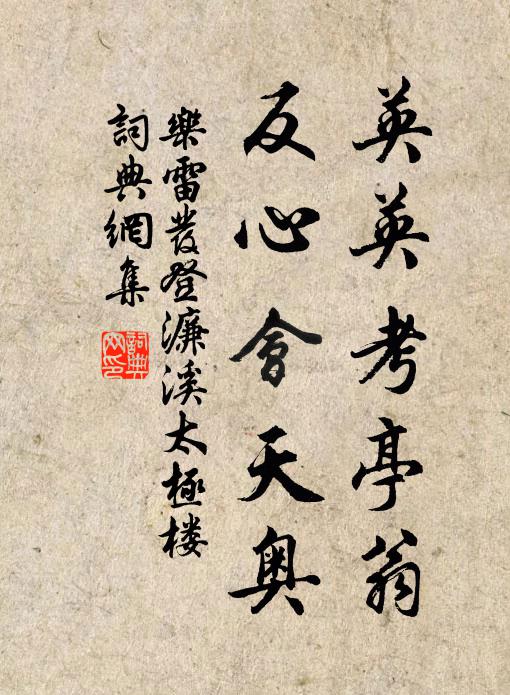 英英考亭翁
反心會天奧
樂雷發登濂溪太極楼
詞典網集
詞典網印